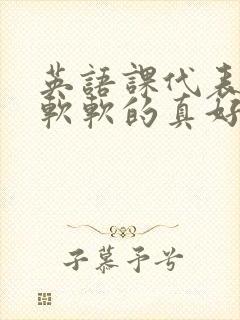 英語課代表
軟軟的真好
子慕予兮